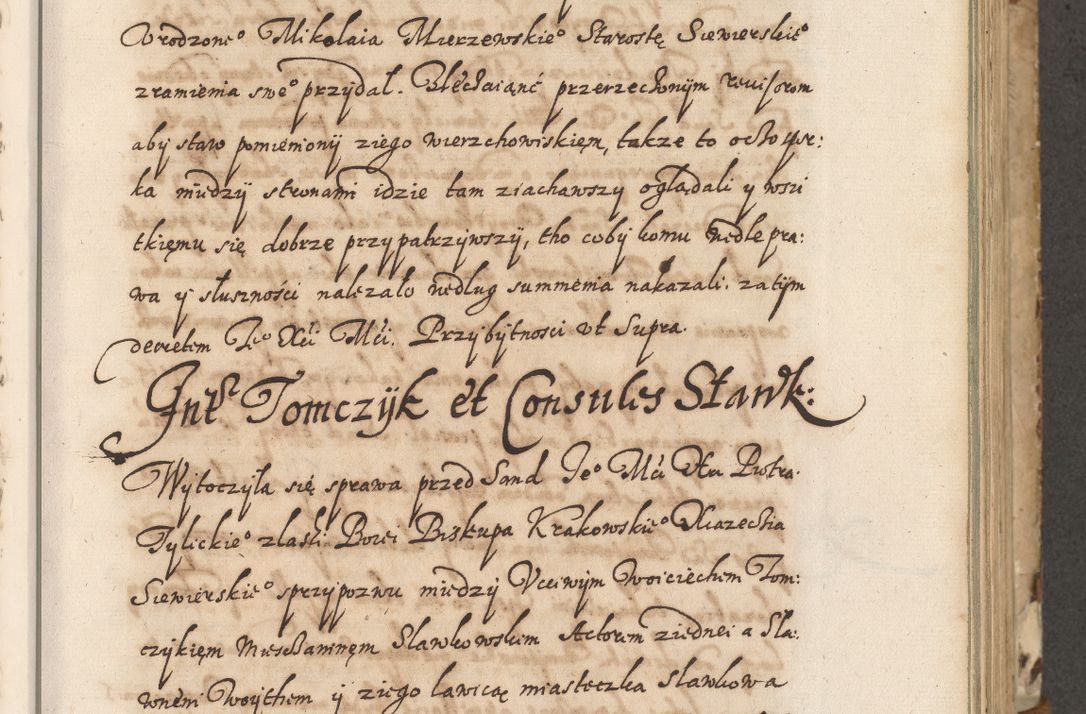 Vrodzone° Mikolaia Mierzewskie° Starostę Siewierskie°
z ramienia swe° przydał. Zlećaiąnć przerzeczonym reuisorom
aby staw pomienionÿ z iego wierzchowiskiem, takze to o
ka międzÿ stronami idzie tam ziachawszy oglądali y wszi
tkięmu się dobrze przypatrzÿwszÿ, tho cobÿ komu wedle pra:
wa ÿ słusznośći nalezało według summenia nakazali. zatÿm
decretem Je° Xći Mći. Przÿbÿtnosci vt Supra.
Int. Tomczÿk et Consules Sławk:
Wÿtoczÿła się sprawa przed Sand Je° Mći Xdza Piotra
Tylickie° z łaski Bozei Biskupa Krakowskie° Xiazecia
Siewierskie° s przÿpozwu międzÿ Vcciwÿm Woiciechem Tom:
czÿkięm Mieschaninęm Slawkowskim Actorem z iednei a Sła:
wnemi Woÿthem ÿ z iego ławicaę miasteczka Sławkowa